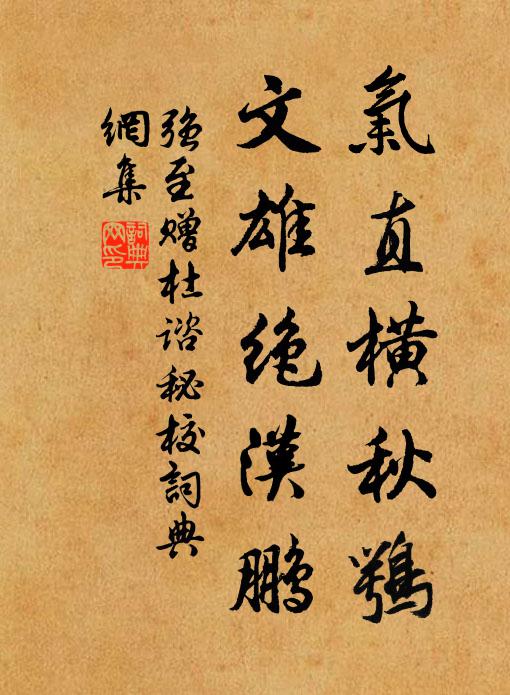 氣直橫秋鶚
文雄絶漢鵬
强至赠杜谘秘校詞典
網集
詞典網印